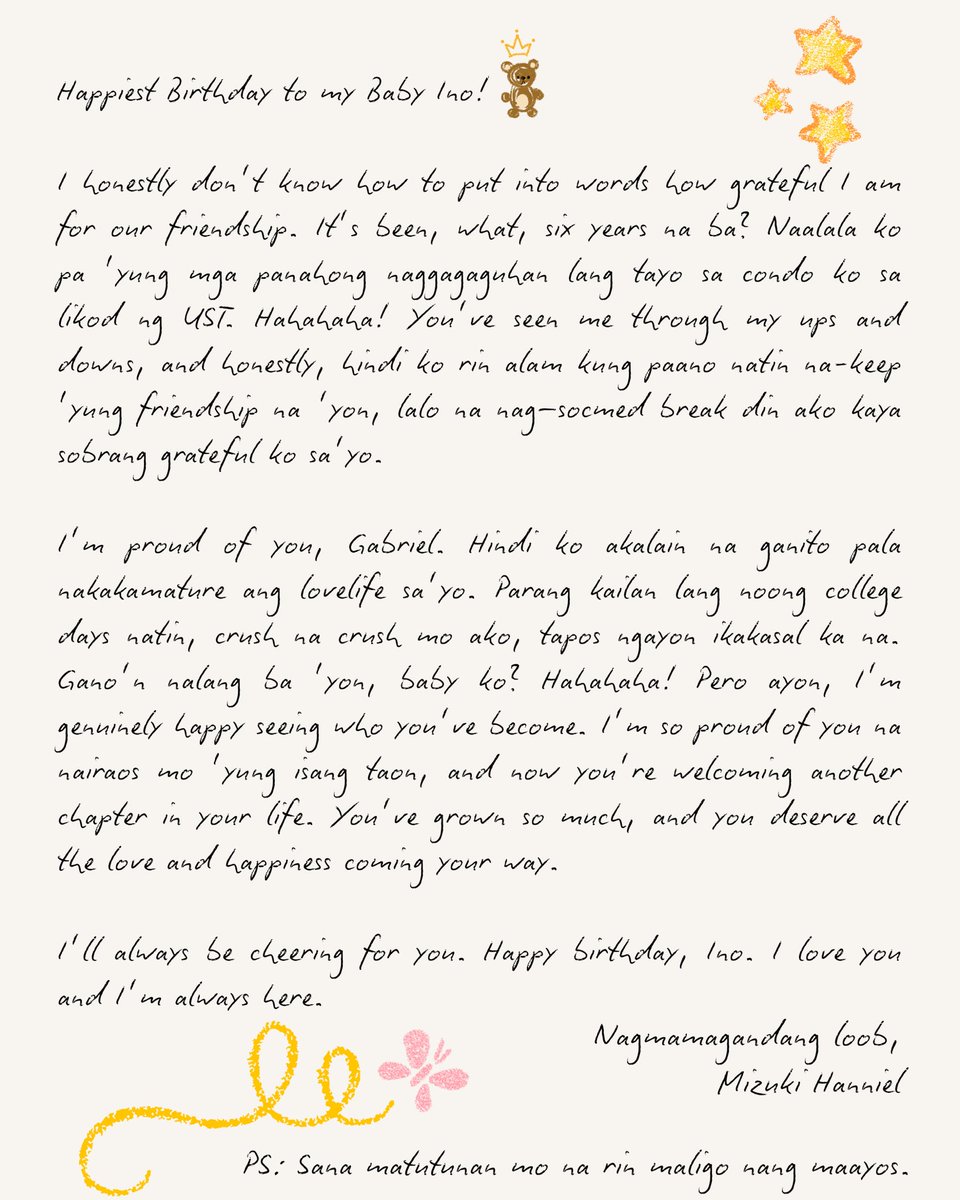 Happiest Birthday to my Baby Ino!
I honestly don't know how to put into words how grateful I am
for our friendship. It's been, what, six years na ba? Naalala ko
pa 'yung mga panahong naggagaguhan lang tayo sa condo ko sa
likod ng UST. Hahahaha! You've seen me through my ups and
downs, and honestly, hindi ko rin alam kung paano natin na-keep
'yung friendship na 'yon, lalo na nag-socmed break din ako kaya
sobrang grateful ko sa'yo.
I'm proud of you, Gabriel. Hindi ko akalain na ganito pala
nakakamature ang lovelife sa'yo. Parang kailan lang noong college
days natin, crush na crush mo ako, tapos ngayon ikakasal ka na.
Gano'n nalang ba 'yon, baby ko? Hahahaha! Pero ayon, I'm
genuinely happy seeing who you've become. I'm so proud of you na
nairaos mo 'yung isang taon, and now you're welcoming another
chapter in your life. You've grown so much, and you deserve all
the love and happiness coming your way.
I'll always be cheering for you. Happy birthday, Ino. I love you
and I'm always here.
Nagmamagandang loob,
Mizuki Hanniel
PS: Sana matutunan mo na rin maligo nang maayos.